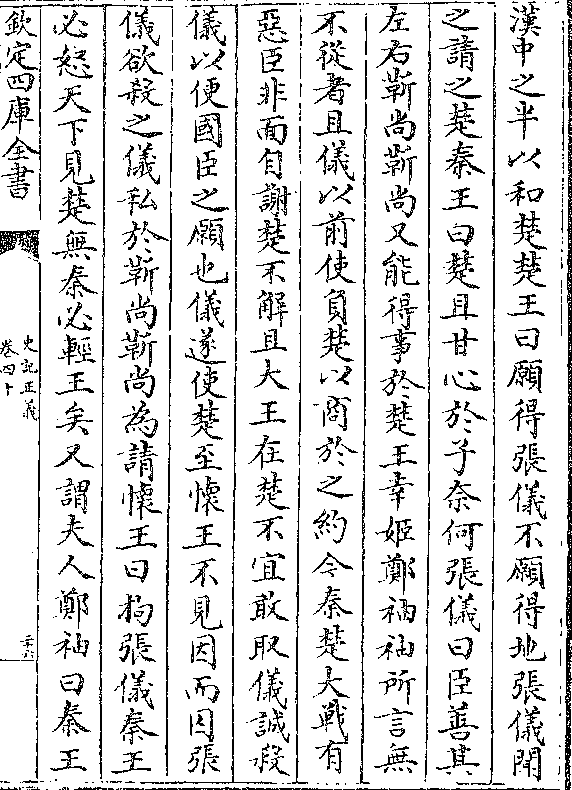 漢中之半以和楚楚王曰願得張儀不願得地張儀聞
之請之楚秦王曰楚且甘心於子奈何張儀曰臣善其
左右靳尚靳尚又能得事於楚王幸姬鄭袖袖所言無
不從者且儀以前使負楚以商於之約今秦楚大戰有
惡臣非面自謝楚不解且大王在楚不宜敢取儀誠殺
儀以便國臣之願也儀遂使楚至懷王不見因而囚張
儀欲殺之儀私於靳尚靳尚為請懷王曰拘張儀秦王
必怒天下見楚無秦必輕王矣又謂夫人鄭袖曰秦王
欽定四庫全書
史記正義
卷四十
三六